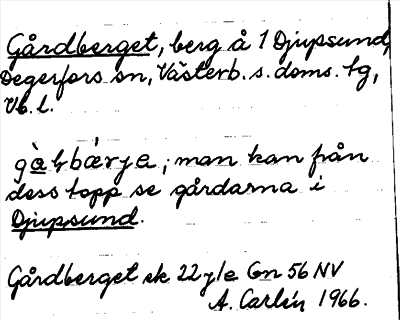 Gårdberget, berg å 1 Djupsund,
Degerfors sn, Västerb. s. doms. tg,
Vb. l.
man kan från
dess topp se gårdarna i
Djupsund.
Gårdberget sk 22 j/e Gn 56 NV
A. Carlén 1966.